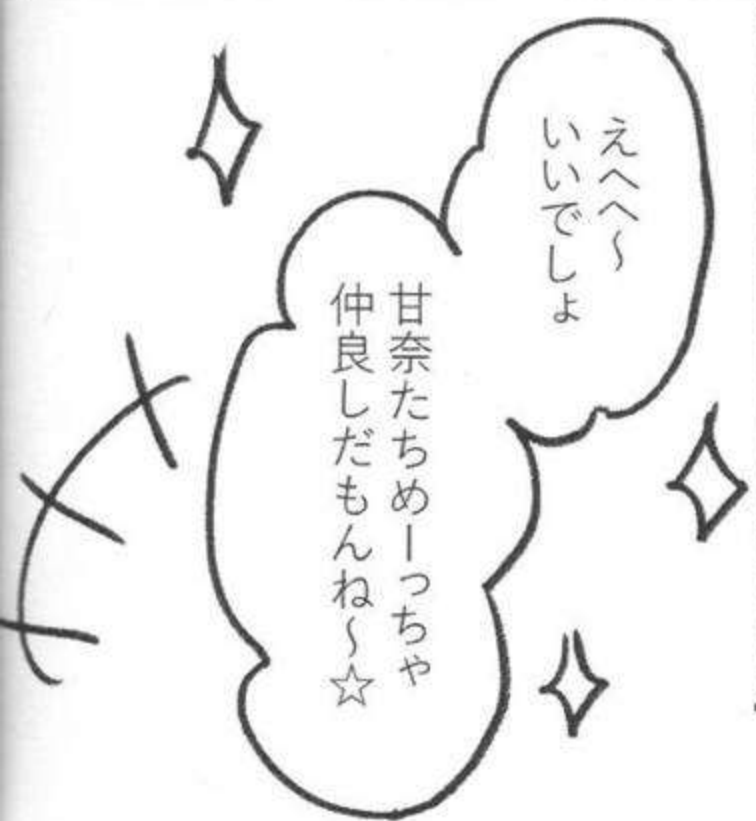 えへへ～
いいでしょ
甘奈たちめーっちゃ
仲良しだもんね～☆